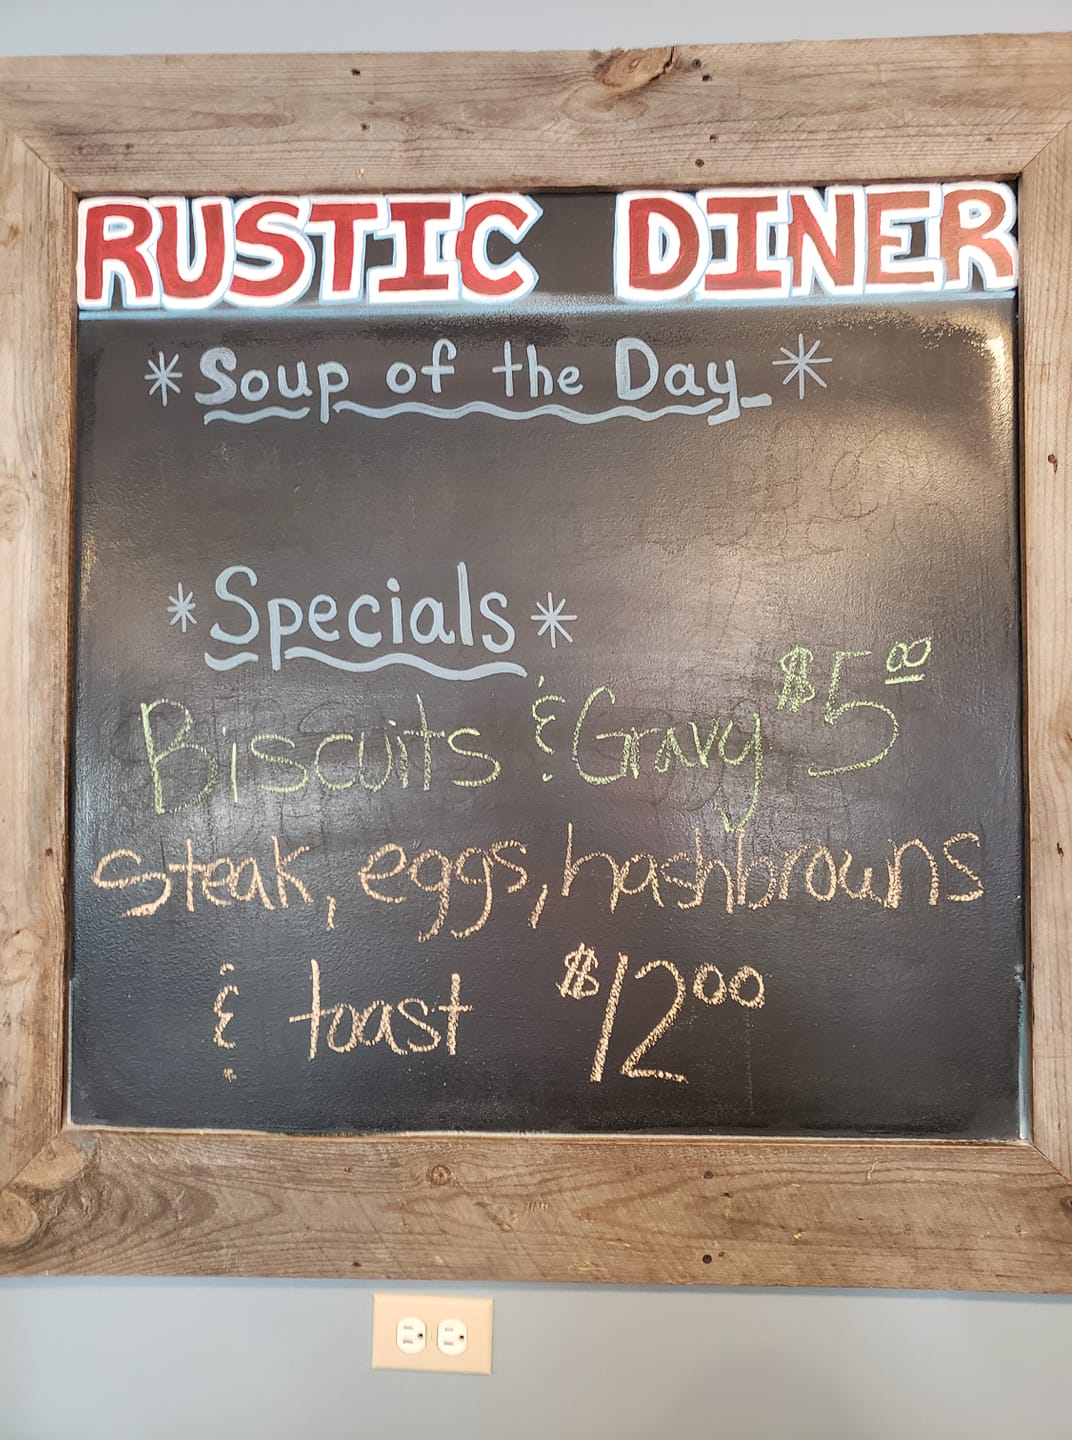 RUSTIC DINER
*Soup of the Day*
*Specials*
Biscuits & Gravy $5.00
steak, eggs, hashbrowns
& toast $12.00